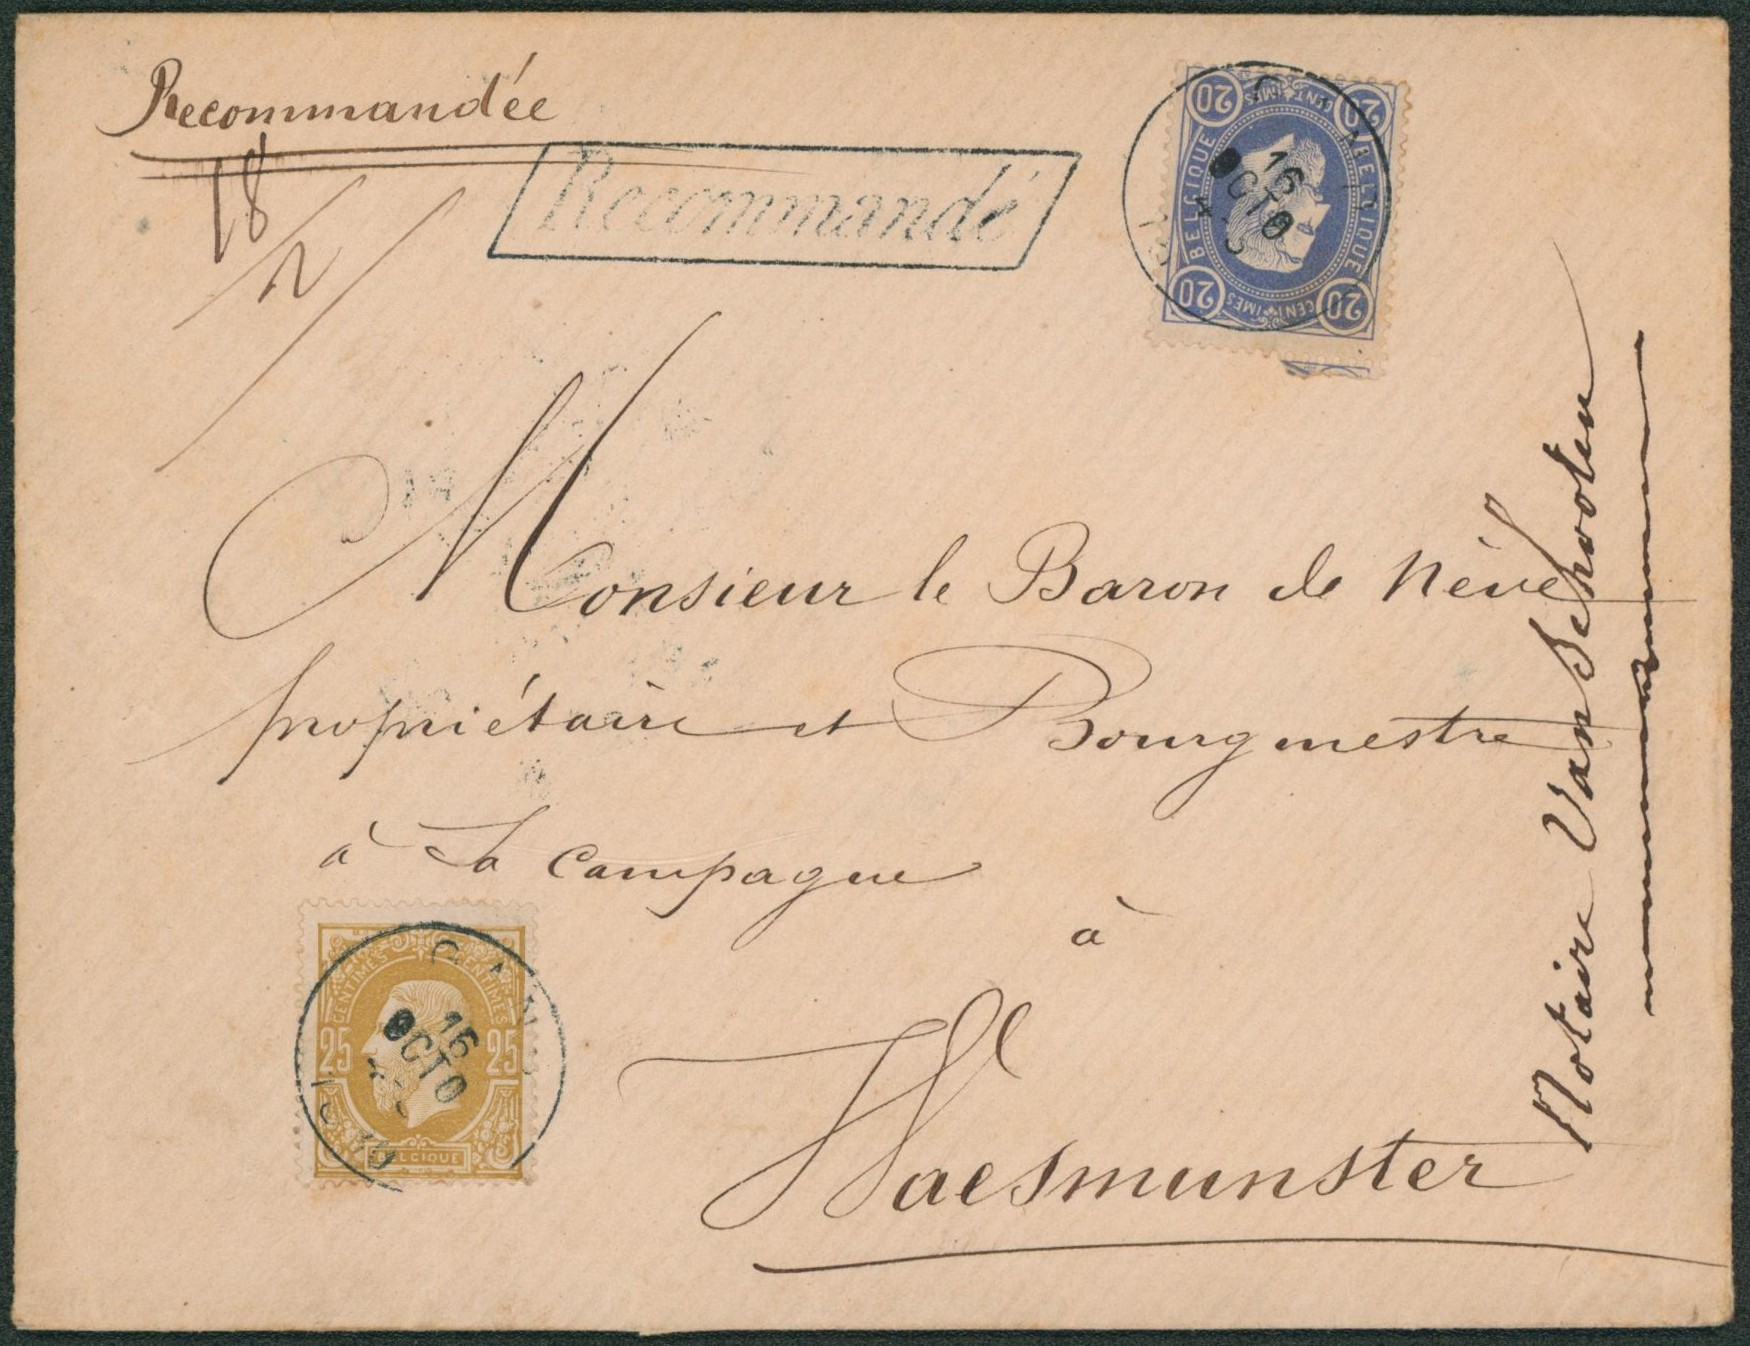 Recommandée
18
Recommandé
20 CENTIMES 20
BELGIQUE BELGIQUE
20 CENTIMES 20
16
OCTO
Monsieur le Baron de Nève
propriétaire et Bourgmestre
à la campagne
à
Waesmunster
Notaire Van Schooten
CENTIMES CENTIMES
25 25
BELGIQUE
GAND
16
OCTO